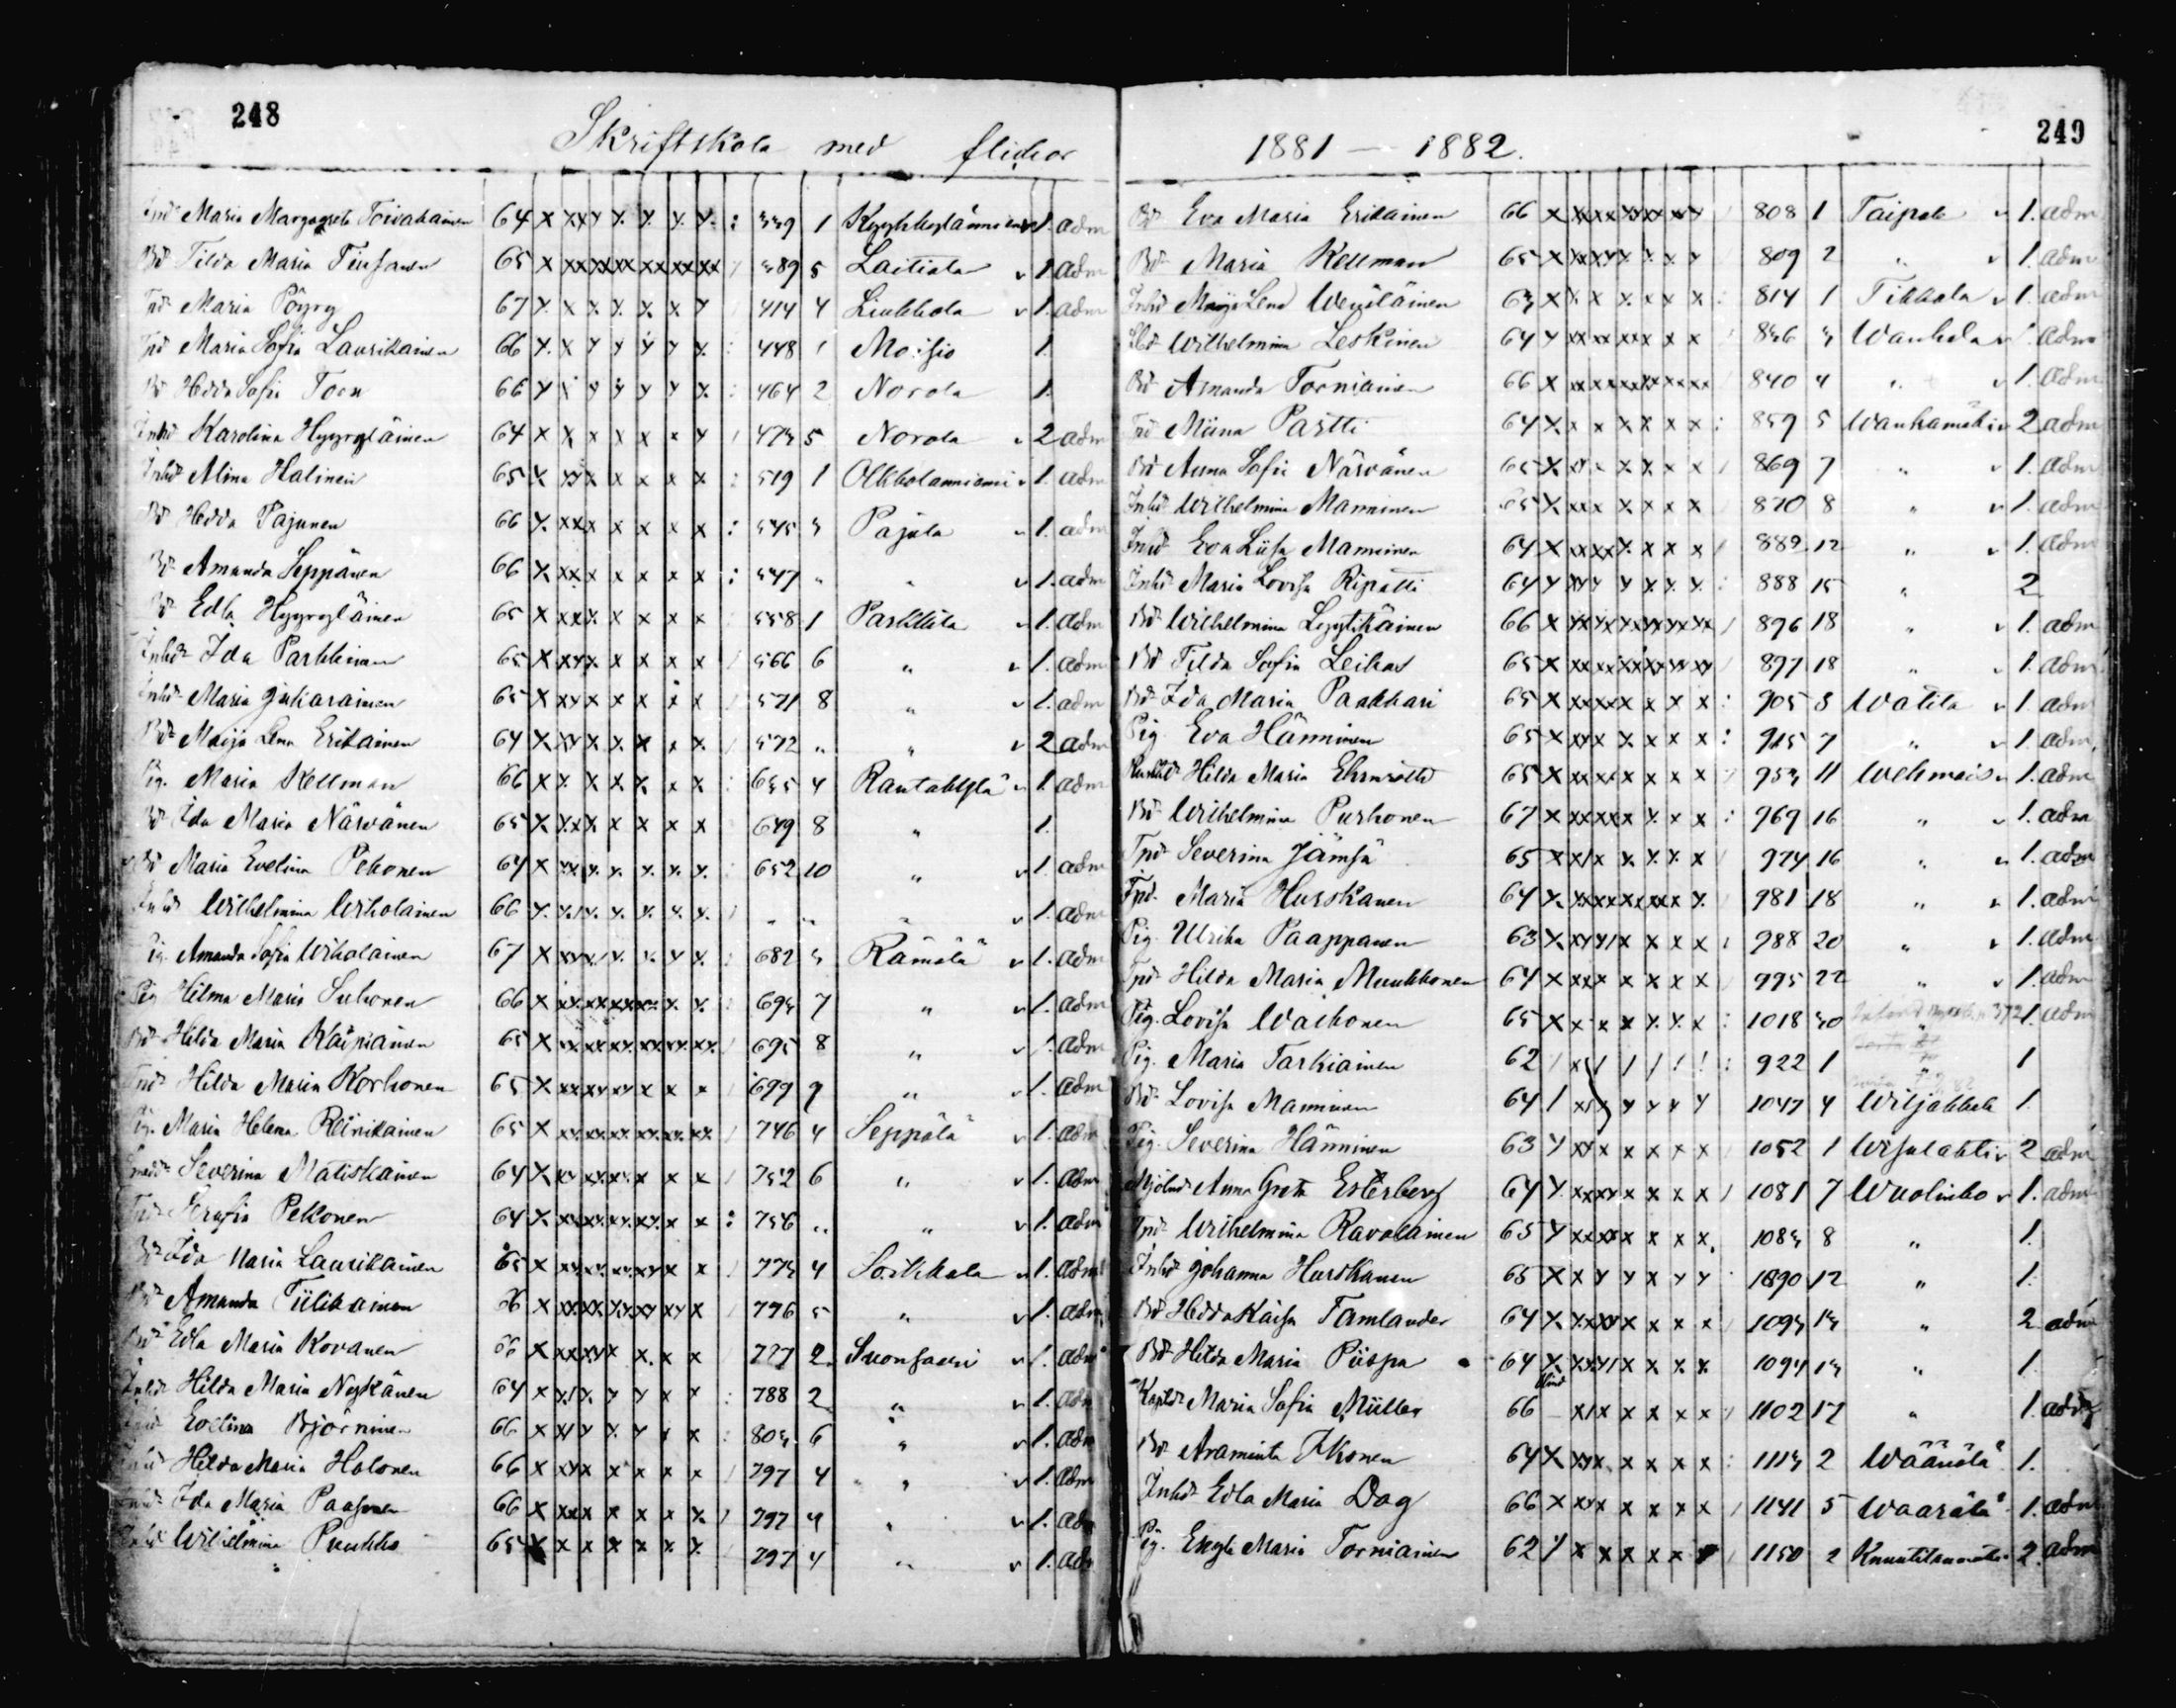 248
Skriftskola med flickor
Inhd Maria Margagreta Toivakainen 64 x xx x x x x x : 339 1 Kyyhkylänniemi v 1. adm
Bd Tilda Maria Tiusanen 65 x xx xx xx xx xx xx / 389 5 Laitiala v 1 adm
Tpd Maria Pöyry 67 x x x x x x x 414 4 Liukkola v 1. adm
Tpd Maria Sofia Laurikainen 66 x x x x x x x : 448 1 Moisio 1.
Bd Hedda Sofia 66 x x x x x x x : 464 2 Norola 1.
Inhd Karolina Hyyryläinen 64 x x x x x x x / 473 5 Norola v 2 adm
Inhd Alina Halinen 65 x xx x x x x x : 519 1 Olkkolanniemi v 1. adm
Bd Hedda Pajunen 66 x xx x x x x x : 545 3 Pajula v 1. adm
Bd Amanda Seppänen 66 x xx x x x x x : 547 " " v 1. adm
Bd Edla Hyyryläinen 65 x xx x x x x x 558 1 Parkkila v 1. adm
Inhd Ida Parkkinen 65 x xx x x x x x / 566 6 " v 1. adm
Inhd Maria Jukarainen 65 x xx x x x x x / 571 8 " v 1. adm
Bd Maija Lena Erikainen 64 x xx x x x x x / 572 " " v 2 adm
Pig. Maria Kellman 66 x x x x x x x : 635 4 Rantakylä v 1. adm
Bd Ida Maria Närvänen 65 x xx x x x x x 649 8 " 1.
Bd Maria Evelina Pekonen 64 x xx x x x x x : 652 10 " v 1. adm
Inhd Wilhelmina Wiholainen 66 x x/x x x x x / " " " v 1. adm
Pig. Amanda Sofia Wiholainen 67 x xx / x x x x : 682 3 Rämälä v 1. adm
Pig Hilma Maria Suhonen 66 x xx xx xx xx x x 693 7 " v 1. adm
Bd Hilda Maria Kaipiainen 65 x xx xx xx xx xx / 695 8 " v 1. adm
Tpd Hilda Maria Korhonen 65 x xx xx xx x x x 699 9 " v 1. adm
Pig. Maria Helena Reinikainen 65 x xx xx xx xx xx / 746 4 Seppälä v 1. adm
Smedd Severina Matiskainen 64 x xx xx x x x x / 752 6 " v 1. adm
Tpd Serafia Pekonen 64 x xx xx xx x x : 756 " " v 1. adm
Bd Ida Maria Laurikainen 65 x xx xx xx x x / 773 4 Soikkala v 1. adm
Bd Amanda Tiilikainen 66 x xx xx xx xx x / 776 5 " v 1. adm
Bd Edla Maria Kovanen 66 x xx xx x x x x 727 2 Suonsaari v 1. adm
Inhd Hilda Maria Nykänen 64 x x/x x x x x : 788 2 " v 1. adm
Inhd Evelina Björninen 66 x x/ x x x x x : 803 6 " v 1. adm
Inhd Hilda Maria Halonen 66 x xx x x x x x / 797 4 " v 1. adm
Inhd Ida Maria Paasonen 66 x xx x x x x x / 797 4 " v 1. adm
Inhd Wilhelmina Puukko 65 x x x x x x x 797 4 " v 1. adm
249
1881 — 1882.
Bd Eva Maria Erikainen 66 x xx xx xx xx xx / 808 1 Taipale v 1. adm
Bd Maria Kellman 65 x xx xx x x x x 809 2 " v 1. adm
Inhd Maija Lena Wenäläinen 63 x x x x x x x : 814 1 Tikkala v 1. adm
Wilhelmina Leskinen 64 x xx xx xx x x x : 836 3 Wanhala v 1. adm
Bd Amanda Torniainen 66 x xx xx xx xx xx / 840 4 " v 1. adm
Tpd Miina Partti 64 x x x x x x x : 859 5 Wanhamäki v 2 adm
Bd Anna Sofia Närvänen 65 x xx x x x x x / 869 7 " v 1. adm
Inhd Wilhelmina Manninen 65 x xx x x x x x 870 8 " v 1. adm
Inhd Eva Liisa Manninen 64 x xx xx x x x x / 882 12 " v 1. adm
Inhd Maria Lovisa Ripatti 64 x xx x x x x x : 888 15 " 2
Bd Wilhelmina Lyytikäinen 66 x xx xx xx xx xx / 896 18 " v 1. adm
Bd Tilda Sofia Leikas 65 x xx xx xx xx xx 897 18 " v 1. adm
Bd Ida Maria Paakkari 65 x xx xx x x x x : 905 3 Watila v 1. adm
Pig Eva Hänninen 65 x xx x x x x x : 915 7 " v 1. adm.
Hilda Maria Ehrnrooth 65 x xx xx x x x x / 953 11 Wehmais v 1. adm
Bd Wilhelmina Purhonen 67 x xx xx x x x x : 969 16 " v 1. adm
Tpd Severina Jämsä 65 x x/x x x x x / 974 16 " v 1. adm
Tpd. Maria Hurskanen 64 x xx xx xx xx x / 981 18 " v 1. adm
Pig. Ulrika Paappanen 63 x xx x/x x x x : 988 20 " v 1. adm
Tpd Hilda Maria Muukkonen 64 x xx x x x x x / 995 22 " v 1. adm
Pig. Lovisa Waihonen 65 x x x x x x x : 1018 30 " 372 1. adm
Pig. Maria Tarkiainen 62 / x/ / / / / / : 922 1 " 1
Bd Lovisa Manninen 64 / xx x x x x x 1047 4 Wiljakkala 1.
Pig. Severina Hänninen 63 x xx x x x x x / 1052 1 Wisulahti v 2 adm
Mjölnd Anna Greta Esterberg 64 x xx xx x x x x / 1081 7 Wuolinko v 1. adm
Tpd Wilhelmina Ravolainen 65 x xx xx x x x x. 1083 8 " 1.
Inhd Johanna Hurskanen 65 x x x x x x x 1890 12 " 1.
Bd Hedda Kaisa Tamlander 64 x xx xx x x x x / 1093 13 " 2 adm
Bd Hilda Maria Piispa 64 x xx x/ x x x x 1094 13 " 1
blind
Kaptd Maria Sofia Müller 66 – x/x x x x x / 1102 17 " 1. adm
Bd Araminta Ikonen 64 x xx x x x x x : 1113 2 Wäänälä 1.
Inhd Edla Maria Dag 66 x xx x x x x x / 1141 5 Waarala 1. adm
Pig. Maria Torniainen 62 / x x x x x x 1150 2 2. adm